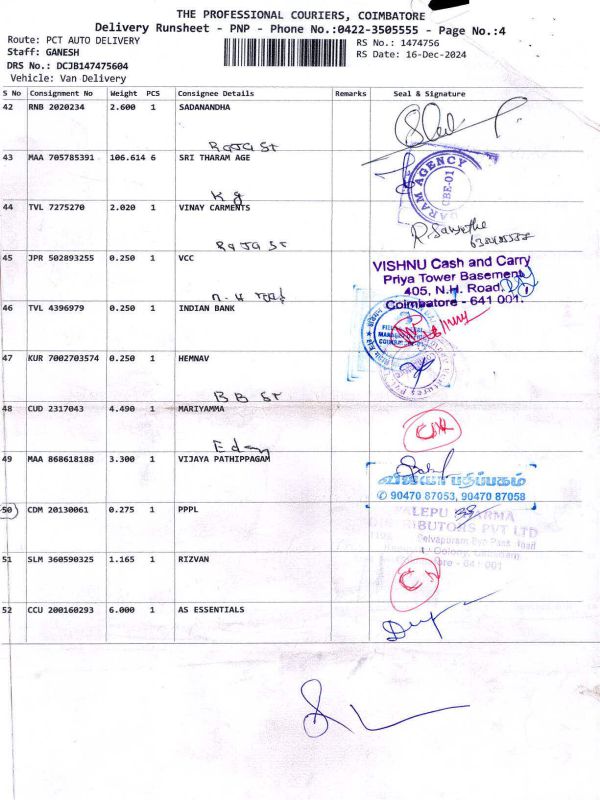 THE PROFESSIONAL COURIERS, COIMBATORE
Delivery Runsheet - PNP - Phone No.:0422-3505555 - Page No.:4
Route: PCT AUTO DELIVERY
Staff: GANESH
DRS No.: DCJB147475604
Vehicle: Van Delivery
RS No.: 1474756
RS Date: 16-Dec-2024
S No Consignment No Weight PCS Consignee Details Remarks Seal & Signature
42 RNB 2020234 2.600 1 SADANANDHA
Raja St
43 MAA 705785391 106.614 6 SRI THARAM AGE
ARAM AGENCY
CBE-01
K G
44 TVL 7275270 2.020 1 VINAY CARMENTS
Raja St
45 JPR 502893255 0.250 1 VCC
VISHNU Cash and Carry
Priya Tower Basement
405, N.H. Road.
Coimbatore - 641 001.
46 TVL 4396979 0.250 1 INDIAN BANK
47 KUR 7002703574 0.250 1 HEMNAV
B B St
48 CUD 2317043 4.490 1 MARIYAMMA
49 MAA 868618188 3.300 1 VIJAYA PATHIPPAGAM
விஜயா பதிப்பகம்
✆ 90470 87053, 90470 87058
50 CDM 20130061 0.275 1 PPPL
ALEPU SHARMA
DISTRIBUTORS PVT LTD
Selvapuram Bye Pass Road
Colony,
ore - 641 001
51 SLM 360590325 1.165 1 RIZVAN
52 CCU 200160293 6.000 1 AS ESSENTIALS